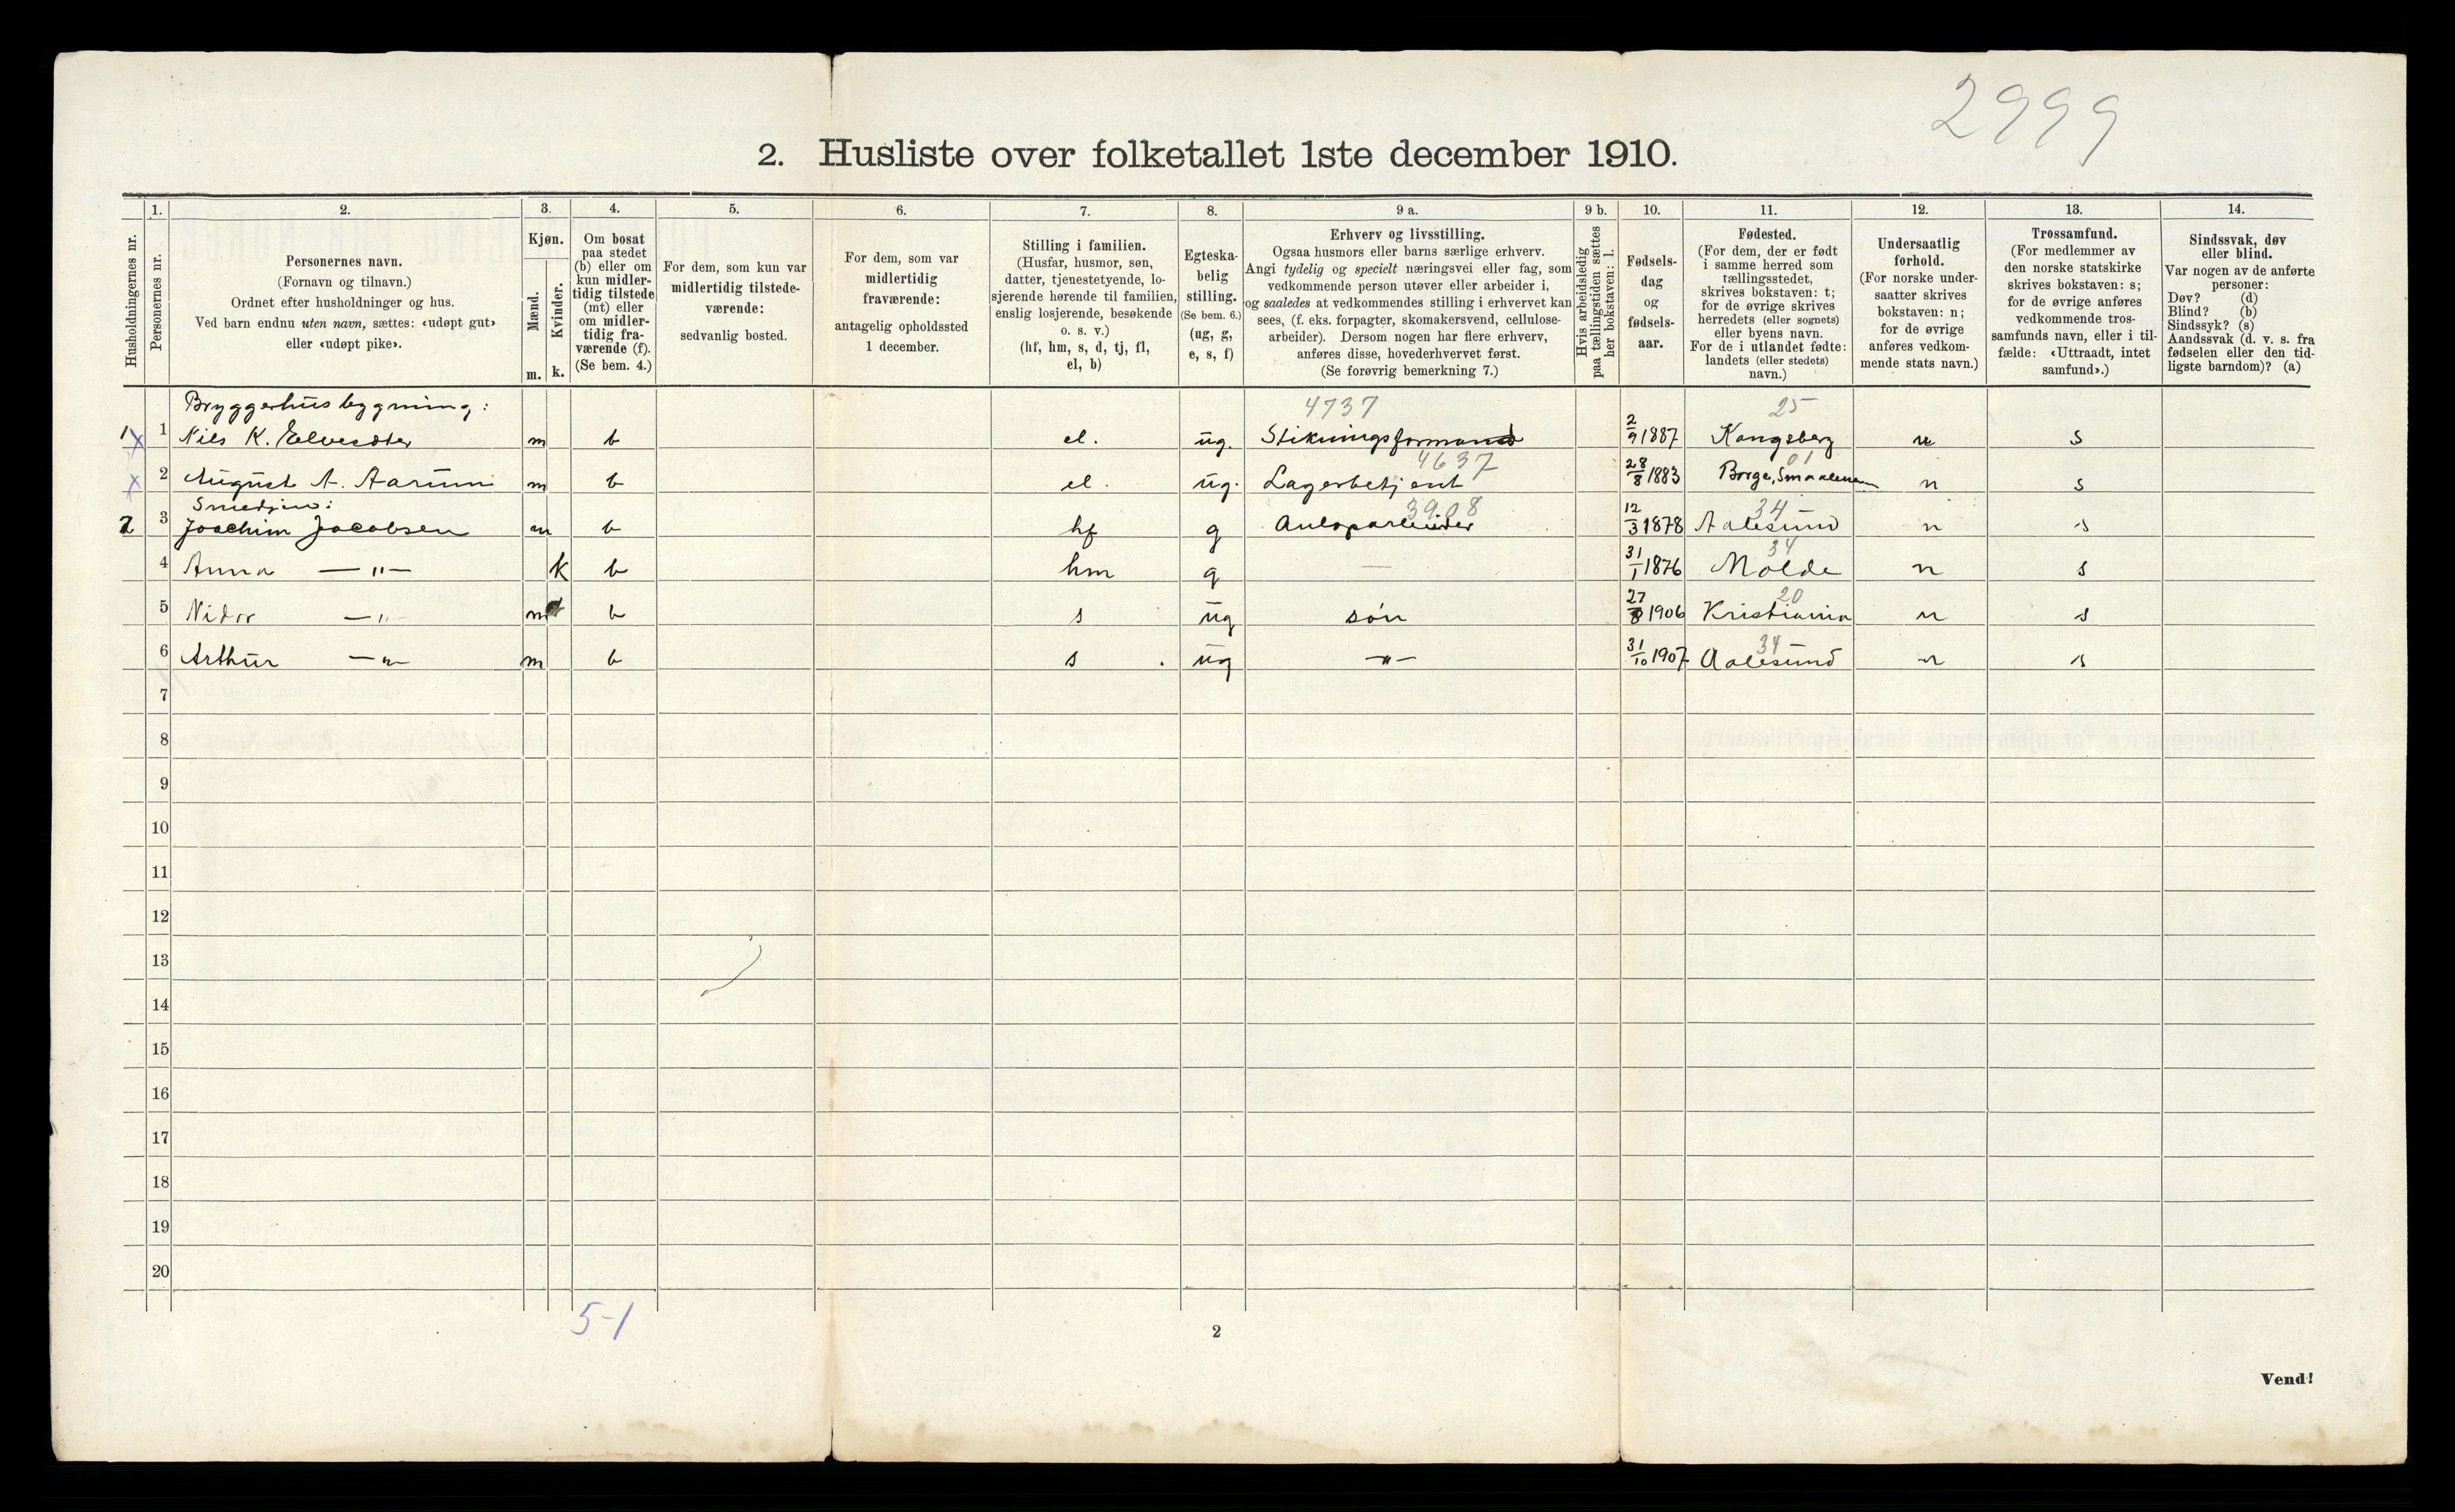 2999
2. Husliste over folketallet 1ste december 1910.
Husholdningernes nr.
1.
Personernes nr.
2.
Personernes navn.
(Fornavn og tilnavn.)
Ordnet efter husholdninger og hus.
Ved barn endnu uten navn, sættes: «udøpt gut»
eller «udøpt pike».
3.
Kjøn.
Mænd.
m.
Kvinder.
k.
4.
Om bosat
paa stedet
(b) eller om
kun midler-
tidig tilstede
(mt) eller
om midler-
tidig fra-
værende (f).
(Se bem. 4.)
5.
For dem, som kun var
midlertidig tilstede-
værende:
sedvanlig bosted.
6.
For dem, som var
midlertidig
fraværende:
antagelig opholdssted
1 december.
7.
Stilling i familien.
(Husfar, husmor, søn,
datter, tjenestetyende, lo-
sjerende hørende til familien,
enslig losjerende, besøkende
o. s. v.)
(hf, hm, s, d, tj, fl,
el, b)
8.
Egteska-
belig
stilling.
(Se bem. 6.)
(ug, g,
e, s, f)
9 a.
Erhverv og livsstilling.
Ogsaa husmors eller barns særlige erhverv.
Angi tydelig og specielt næringsvei eller fag, som
vedkommende person utøver eller arbeider i,
og saaledes at vedkommendes stilling i erhvervet kan
sees, (f. eks. forpagter, skomakersvend, cellulose-
arbeider). Dersom nogen har flere erhverv,
anføres disse, hovederhvervet først.
(Se forøvrig bemerkning 7.)
9 b.
Hvis arbeidsledig
paa tællingstiden sættes
her bokstaven: l.
10.
Fødsels-
dag
og
fødsels-
aar.
11.
Fødested.
(For dem, der er født
i samme herred som
tællingsstedet,
skrives bokstaven: t;
for de øvrige skrives
herredets (eller sognets)
eller byens navn.
For de i utlandet fødte:
landets (eller stedets)
navn.)
12.
Undersaatlig
forhold.
(For norske under-
saatter skrives
bokstaven: n;
for de øvrige
anføres vedkom-
mende stats navn.)
13.
Trossamfund.
(For medlemmer av
den norske statskirke
skrives bokstaven: s;
for de øvrige anføres
vedkommende tros-
samfunds navn, eller i til-
fælde: «Uttraadt, intet
samfund».)
14.
Sindssvak, døv
eller blind.
Var nogen av de anførte
personer:
Døv? (d)
Blind? (b)
Sindssyk? (s)
Aandssvak (d. v. s. fra
fødselen eller den tid-
ligste barndom)? (a)
Bryggerhusbygning: 4737 25
1 x 1 Nils K. m b el. ug. Stikningsformand 2/9 1887 Kongsberg n s
4637 01
x 2 August A. Aarum m b el. ug. Lagerbetjent 28/8 1883 Borge, Smaalenene n s
Smedjen: 3908 34
2 3 Joachim Jacobsen m b hf g 12/3 1878 Aalesund n s
34
4 Anna —"— k b hm g — 31/1 1876 Molde n s
20
5 —"— m b s ug søn 27/8 1906 Kristiania n s
34
6 Arthur —"— m b s ug —"— 31/10 1907 Aalesund n s
7
8
9
10
11
12
13
14
15
16
17
18
19
20
5-1
2
Vend!